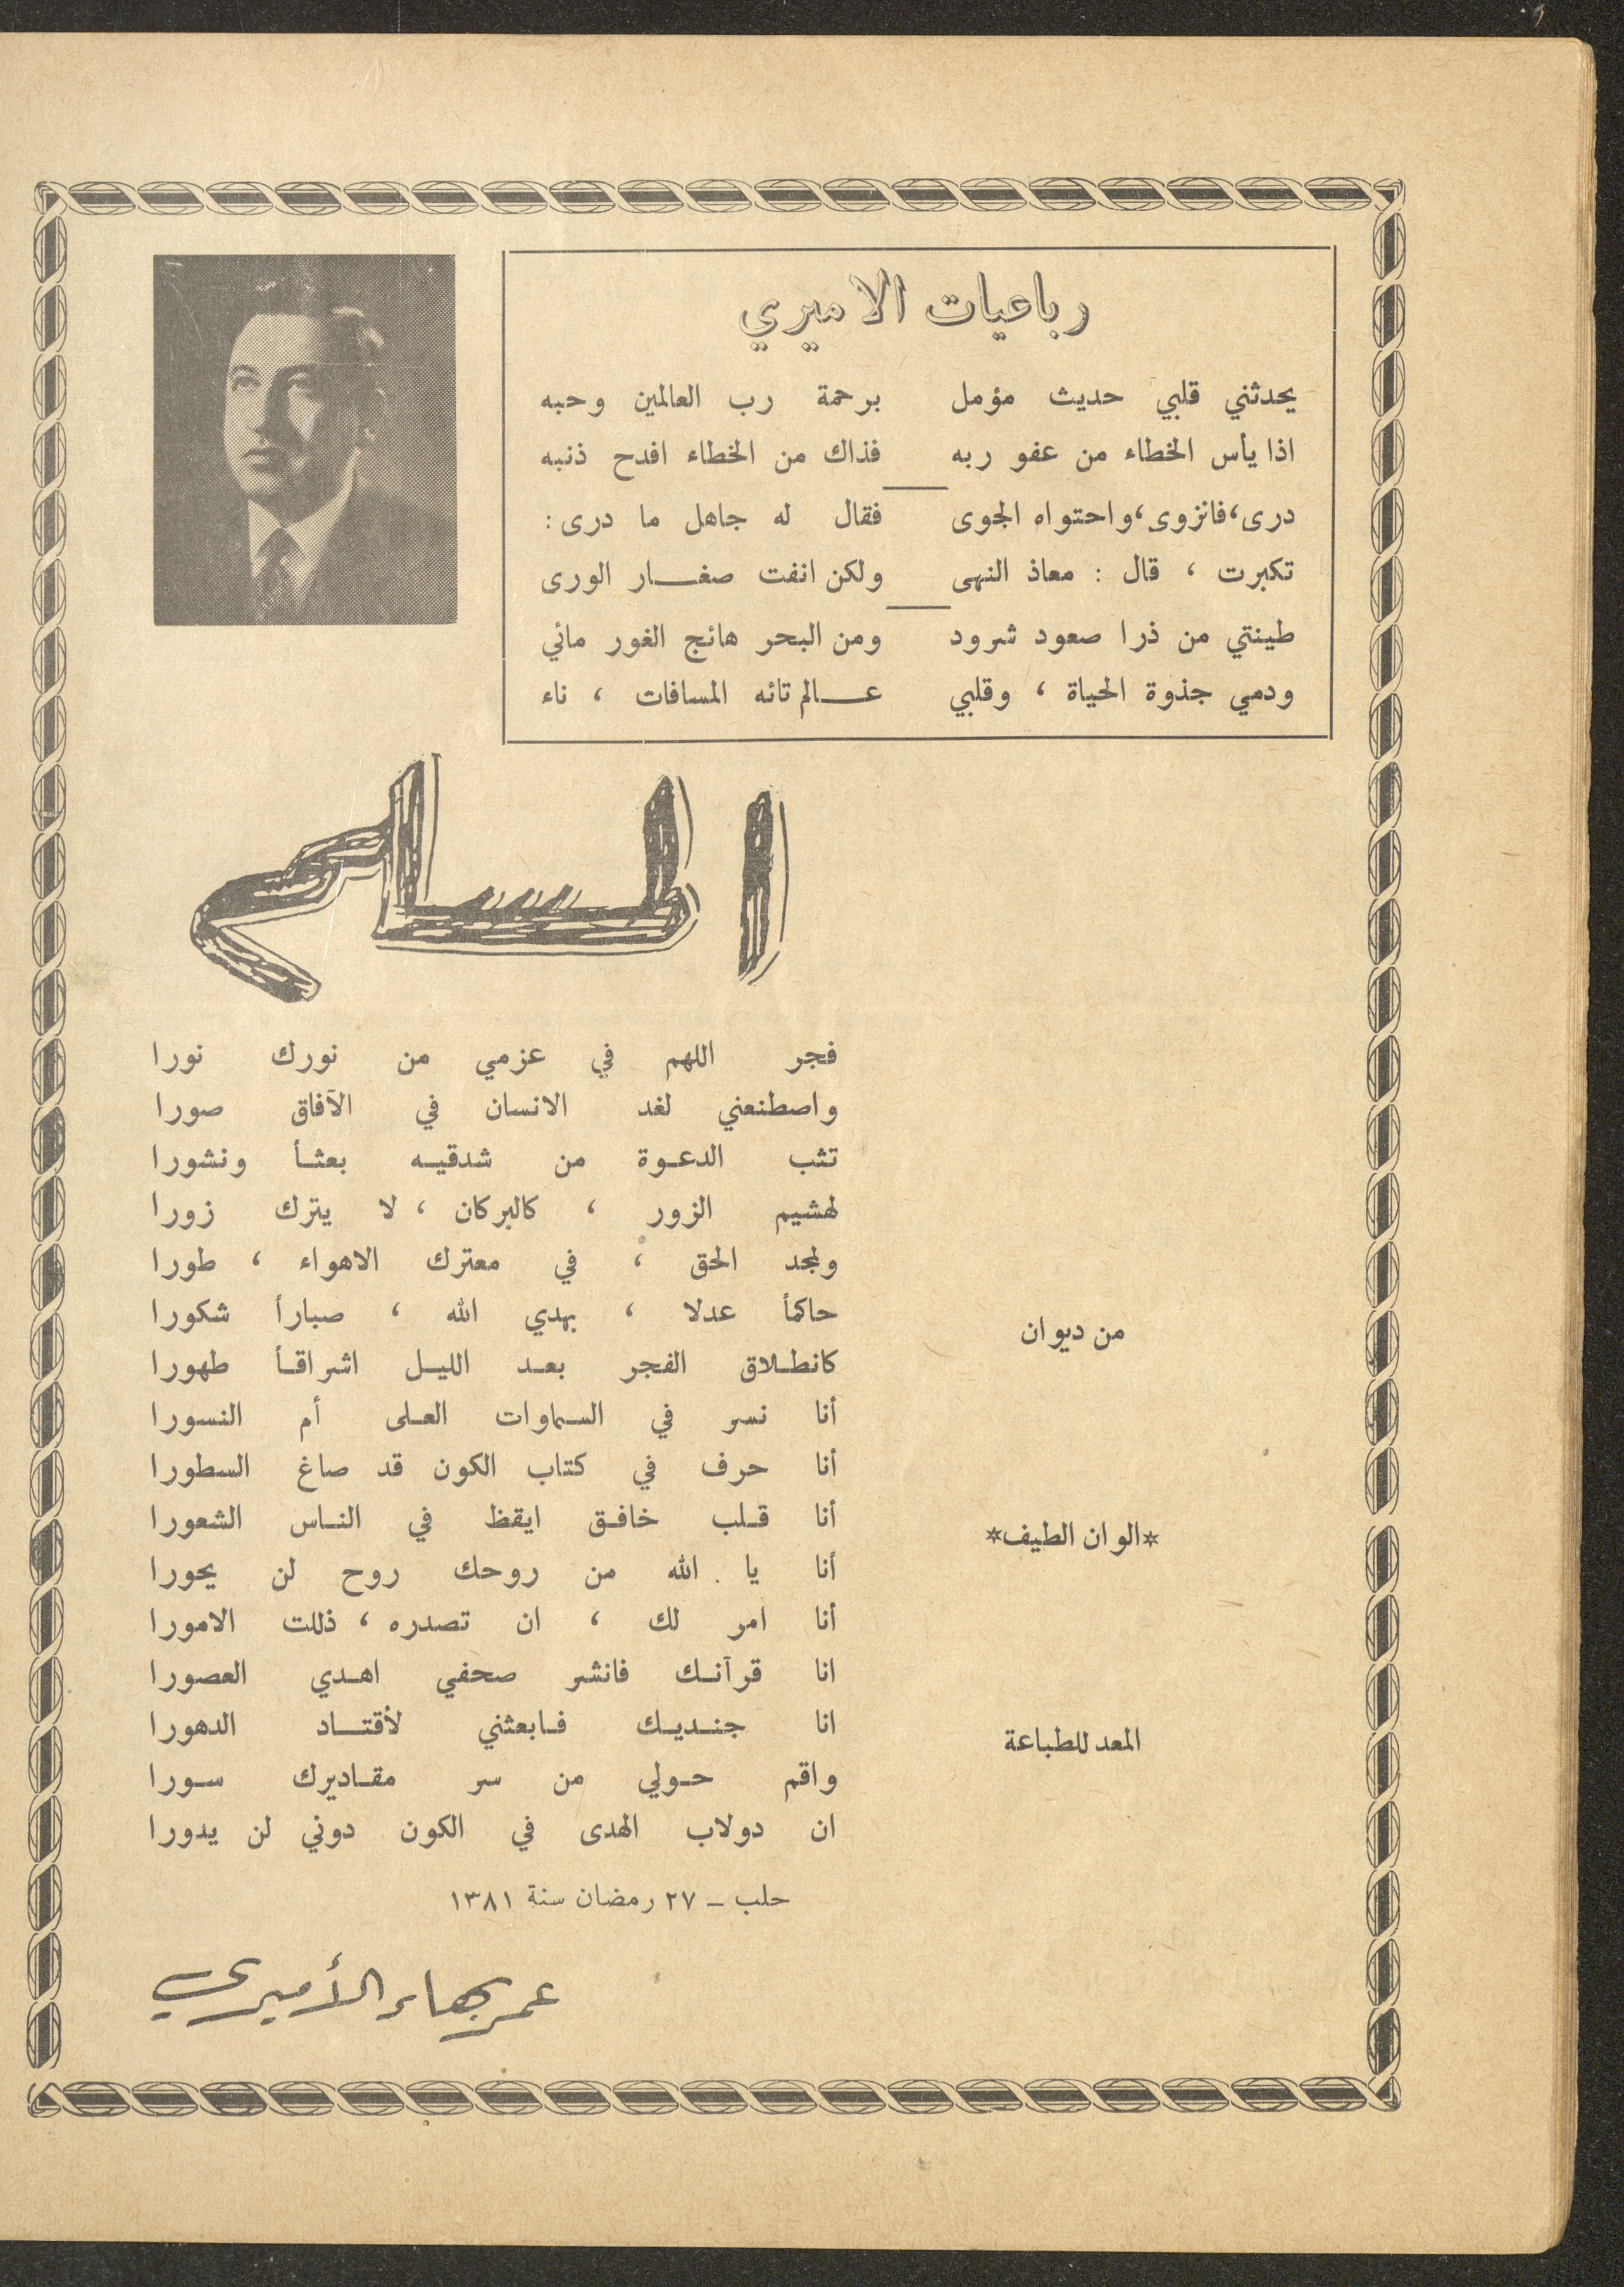 رباعيات الاميري
يحدثني قلبي حديث مؤمل برحمة رب العالمين وحبه
اذا يأس الخطاء من عفو ربه فذاك من الخطاء افدح ذنبه
درى،فانزوى،واحتواه الجوى فقال له جاهل ما درى :
تكبرت ، قال : معاذ النهى ولكن انفت صغار الورى
طينتي من ذرا صعود شرود ومن البحر هائج الغور مائي
ودمي جذوة الحياة ، وقلبي عالم تائه المسافات ، ناء
فجر اللهم في عزمي من نورك نورا
واصطنعني لغد الانسان في الآفاق صورا
تثب الدعوة من شدقيه بعثأ ونشورا
لهشيم الزور ، كالبركان ، لا يترك زورا
ولمجد الحق ، في معترك الاهواء ، طورا
حاكمأ عدلا ، بهدي الله ، صبارأ شكورا
كانطلاق الفجر بعد الليل اشراقأ طهورا
أنا نسر في السماوات العلى أم النسورا
أنا حرف في كتاب الكون قد صاغ السطورا
أنا قلب خافق ايقظ في الناس الشعورا
أنا يا الله من روحك روح لن يحورا
أنا امر لك ، ان تصدره ، ذللت الامورا
انا قرآنك فانشر صحفي اهدي العصورا
انا جنديك فابعثني لأقتاد الدهورا
واقم حولي من سر مقاديرك سورا
ان دولاب الهدى في الكون دوني لن يدورا
حلب ـ ٢٧ رمضان سنة ١٣٨١
عمر بهاء الأميري
من ديوان
*الوان الطيف*
المعد للطباعة